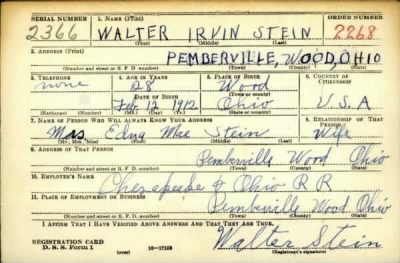 SERIAL NUMBER 1. NAME (Print) ORDER NUMBER
2366 WALTER IRVIN STEIN 2268
(First) (Middle) (Last)
2. ADDRESS (Print)
PEMBERVILLE, WOOD, OHIO
(Number and street or R. F. D. number) (Town) (County) (State)
3. TELEPHONE 4. AGE IN YEARS 5. PLACE OF BIRTH 6. COUNTRY OF CITIZENSHIP
none 28 Wood
DATE OF BIRTH (Town or county)
Feb. 12 1912 Ohio U.S.A
(Exchange) (Number) (Mo.) (Day) (Yr.) (State or country)
7. NAME OF PERSON WHO WILL ALWAYS KNOW YOUR ADDRESS 8. RELATIONSHIP OF THAT PERSON
Mrs Edna Mae Stein Wife
(Mr., Mrs., Miss) (First) (Middle) (Last)
9. ADDRESS OF THAT PERSON
Pemberville Wood Ohio
(Number and street or R. F. D. number) (Town) (County) (State)
10. EMPLOYER'S NAME
Chesapeake & Ohio R R
11. PLACE OF EMPLOYMENT OR BUSINESS
Pemberville Wood Ohio
(Number and street or R. F. D. number) (Town) (County) (State)
I AFFIRM THAT I HAVE VERIFIED ABOVE ANSWERS AND THAT THEY ARE TRUE.
REGISTRATION CARD Walter Stein
D. S. S. FORM 1 (over) 16-17105 (Registrant's signature)